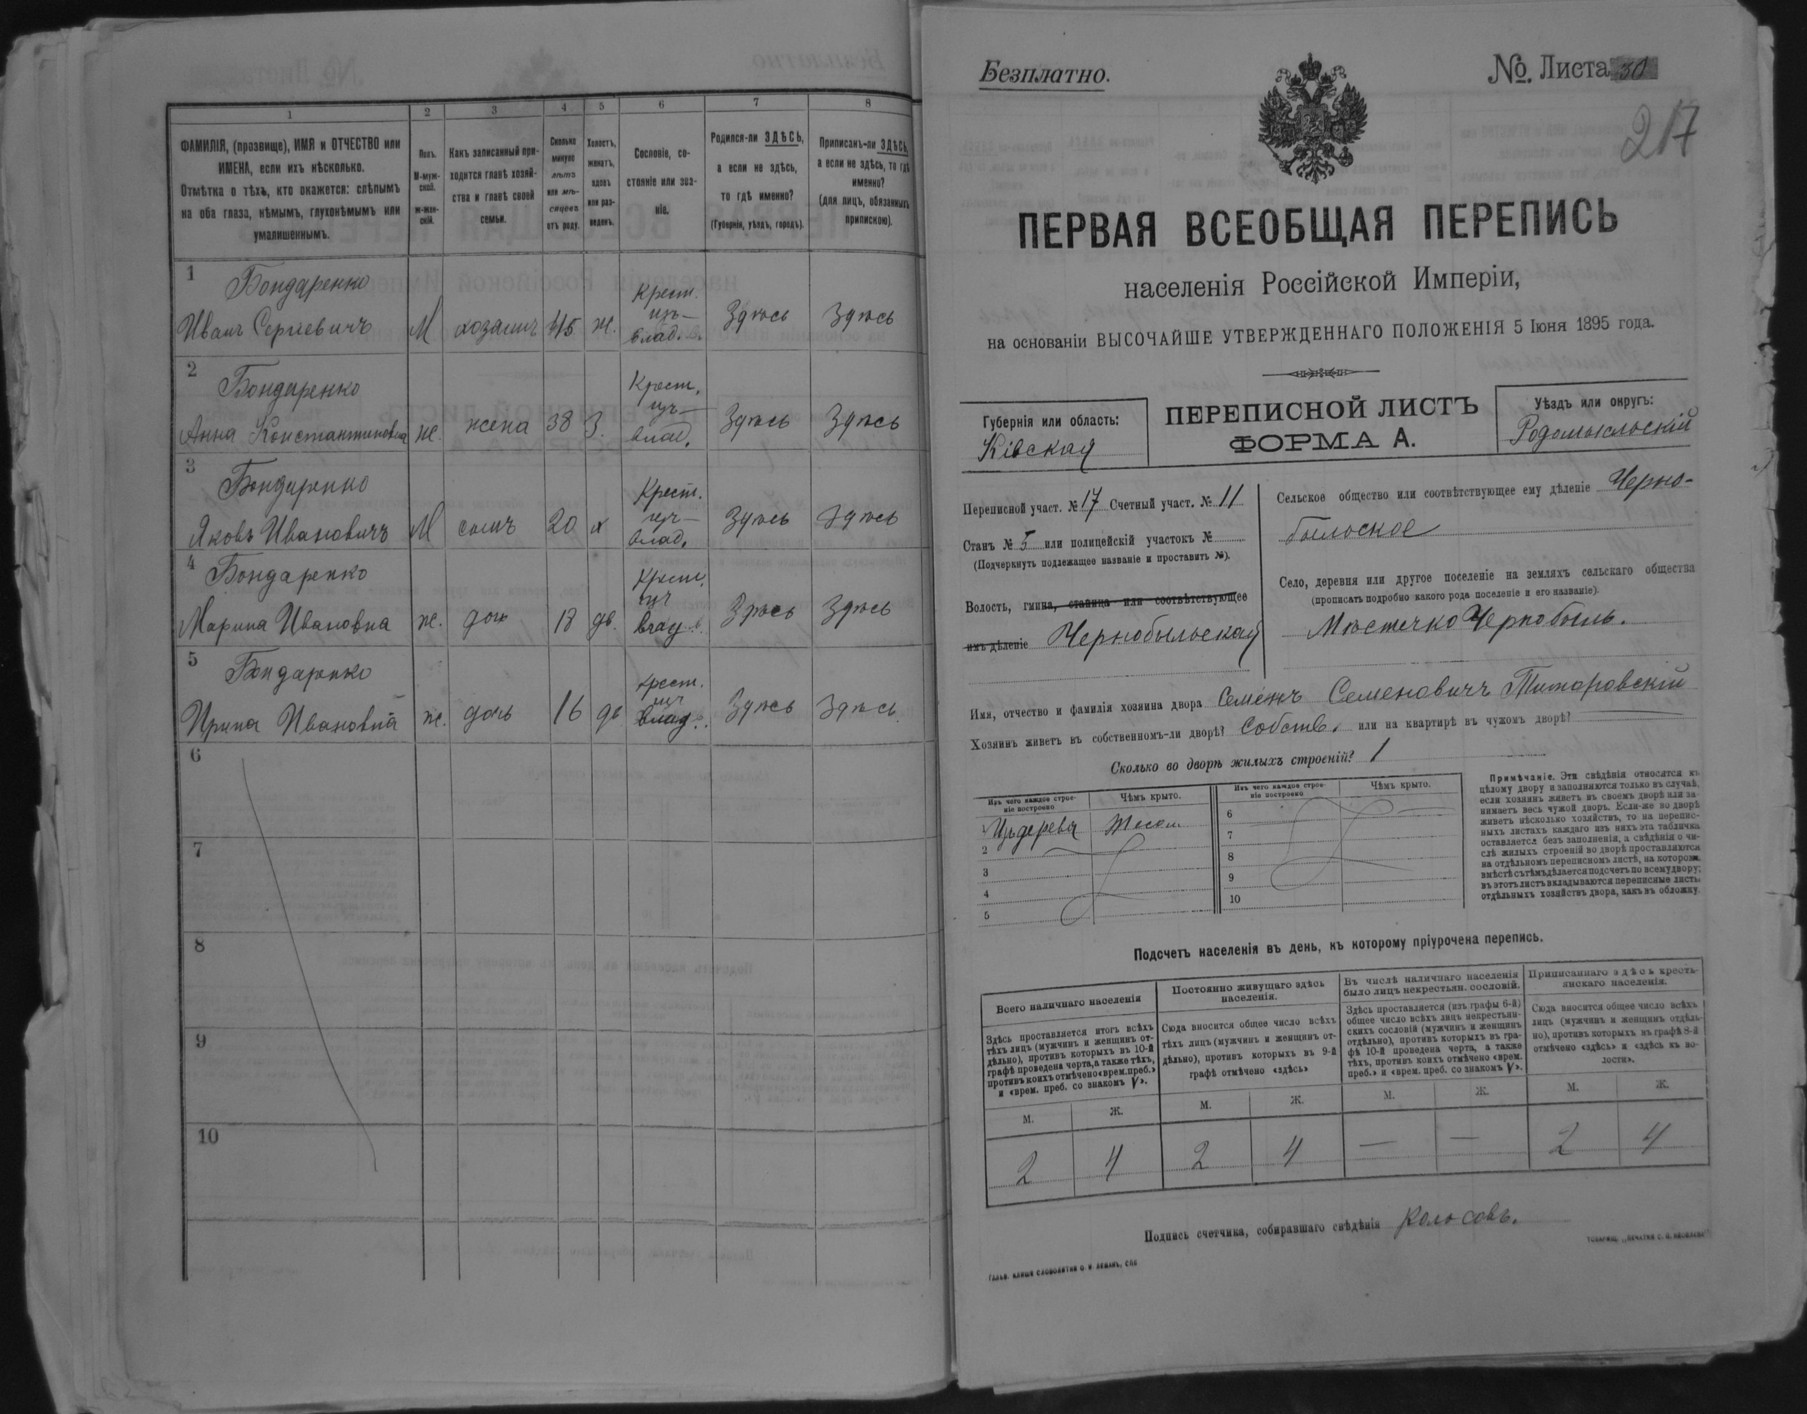 1 2 3 4 5 6 7 8
ФАМИЛІЯ, (прозвище), ИМЯ и ОТЧЕСТВО или
ИМЕНА, если ихъ нѣсколько.
Отмѣтка о тѣхъ, кто окажется: слѣпымъ
на оба глаза, нѣмымъ, глухонѣмымъ или
умалишеннымъ.
Полъ.
М-муж-
ской.
ж-жен-
скій.
Какъ записанный при-
ходится главѣ хозяй-
ства и главѣ своей
семьи.
Сколько
минуло
лѣтъ
или мѣ-
сяцевъ
отъ роду.
Холостъ,
женатъ,
вдовъ
или раз-
веденъ.
Сословіе, со-
стояніе или зва-
ніе.
Родился-ли ЗДѢСЬ,
а если не здѣсь,
то гдѣ именно?
(Губернія, уѣздъ, городъ).
Приписанъ-ли ЗДѢСЬ,
а если не здѣсь, то гдѣ
именно?
(для лицъ, обязанныхъ
припискою).
1 Бондаренко
Иванъ Сергѣевичъ М хозяинъ 45 ж. Крест. изъ влад. Здѣсь Здѣсь
2 Бондаренко
Анна Константиновна ж. жена 38 З. Крест. изъ влад. Здѣсь Здѣсь
3 Бондаренко
Яковъ Ивановичъ М сынъ 20 х Крест. изъ влад. Здѣсь Здѣсь
4 Бондаренко
Марина Ивановна ж. дочь 18 дѣ. Крест. изъ влад. Здѣсь Здѣсь
5 Бондаренко
Ирина Ивановна ж. дочь 16 дѣ Крест. изъ влад. Здѣсь Здѣсь
6
7
8
9
10
Безплатно.
№ Листа 30
217
ПЕРВАЯ ВСЕОБЩАЯ ПЕРЕПИСЬ
населенія Россійской Имперіи,
на основаніи ВЫСОЧАЙШЕ УТВЕРЖДЕННАГО ПОЛОЖЕНІЯ 5 Іюня 1895 года.
Губернія или область:
Кіевская
ПЕРЕПИСНОЙ ЛИСТЪ
ФОРМА А.
Уѣздъ или округъ:
Родомысльскій
Переписной участ. № 17 Счетный участ. № 11
Станъ № 5 или полицейскій участокъ №
(Подчеркнуть подлежащее названіе и проставить №).
Волость, гмина, станица или соотвѣтствующее
имъ дѣленіе Чернобыльская
Сельское общество или соотвѣтствующее ему дѣленіе Черно-
быльское
Село, деревня или другое поселеніе на земляхъ сельскаго общества
(прописать подробно какого рода поселеніе и его названіе).
Мѣстечко Чернобыль.
Имя, отчество и фамилія хозяина двора Семенъ Семеновичъ Тиморовскій
Хозяинъ живетъ въ собственномъ-ли дворѣ? Собств. или на квартирѣ въ чужомъ дворѣ?
Сколько во дворѣ жилыхъ строеній? 1
Изъ чего каждое строе-
ніе построено
Чѣмъ крыто.
Изъ чего каждое строе-
ніе построено
Чѣмъ крыто.
Изъ дерева Тесом
2
3
4
5
6
7
8
9
10
Примѣчаніе. Эти свѣдѣнія относятся къ
цѣлому двору и заполняются только въ случаѣ,
если хозяинъ живетъ въ своемъ дворѣ или за-
нимаетъ весь чужой дворъ. Если-же во дворѣ
живетъ нѣсколько хозяйствъ, то на перепис-
ныхъ листахъ каждаго изъ нихъ эта табличка
оставляется безъ заполненія, а свѣдѣнія о чи-
слѣ жилыхъ строеній во дворѣ проставляются
на отдѣльномъ переписномъ листѣ, на которомъ
вмѣстѣ съ тѣмъ дѣлается подсчетъ по всему двору;
въ этотъ листъ вкладываются переписные листы
отдѣльныхъ хозяйствъ двора, какъ въ обложку.
Подсчетъ населенія въ день, къ которому пріурочена перепись.
Всего наличнаго населенія
Здѣсь проставляется итогъ всѣхъ
тѣхъ лицъ (мужчинъ и женщинъ от-
дѣльно), противъ которыхъ въ 10-й
графѣ проведена черта, а также тѣхъ,
противъ коихъ отмѣчено «врем. преб.»
и «врем. преб. со знакомъ V».
Постоянно живущаго здѣсь
населенія.
Сюда вносится общее число всѣхъ
тѣхъ лицъ (мужчинъ и женщинъ от-
дѣльно), противъ которыхъ въ 9-й
графѣ отмѣчено «здѣсь»
Въ числѣ наличнаго населенія
было лицъ некрестьян. сословій.
Здѣсь проставляется (изъ графы 6-й)
общее число всѣхъ лицъ некрестьян-
скихъ сословій (мужчинъ и женщинъ
отдѣльно), противъ которыхъ въ гра-
фѣ 10-й проведена черта, а также
тѣхъ, противъ коихъ отмѣчено «врем.
преб.» и «врем. преб. со знакомъ V».
Приписаннаго здѣсь кресть-
янскаго населенія.
Сюда вносится общее число всѣхъ
лицъ (мужчинъ и женщинъ отдѣль-
но), противъ которыхъ въ графѣ 8-й
отмѣчено «здѣсь» и «здѣсь къ во-
лости».
М. Ж. М. Ж. М. Ж. М. Ж.
2 4 2 4 — — 2 4
Подпись счетчика, собиравшаго свѣдѣнія Колосовъ.